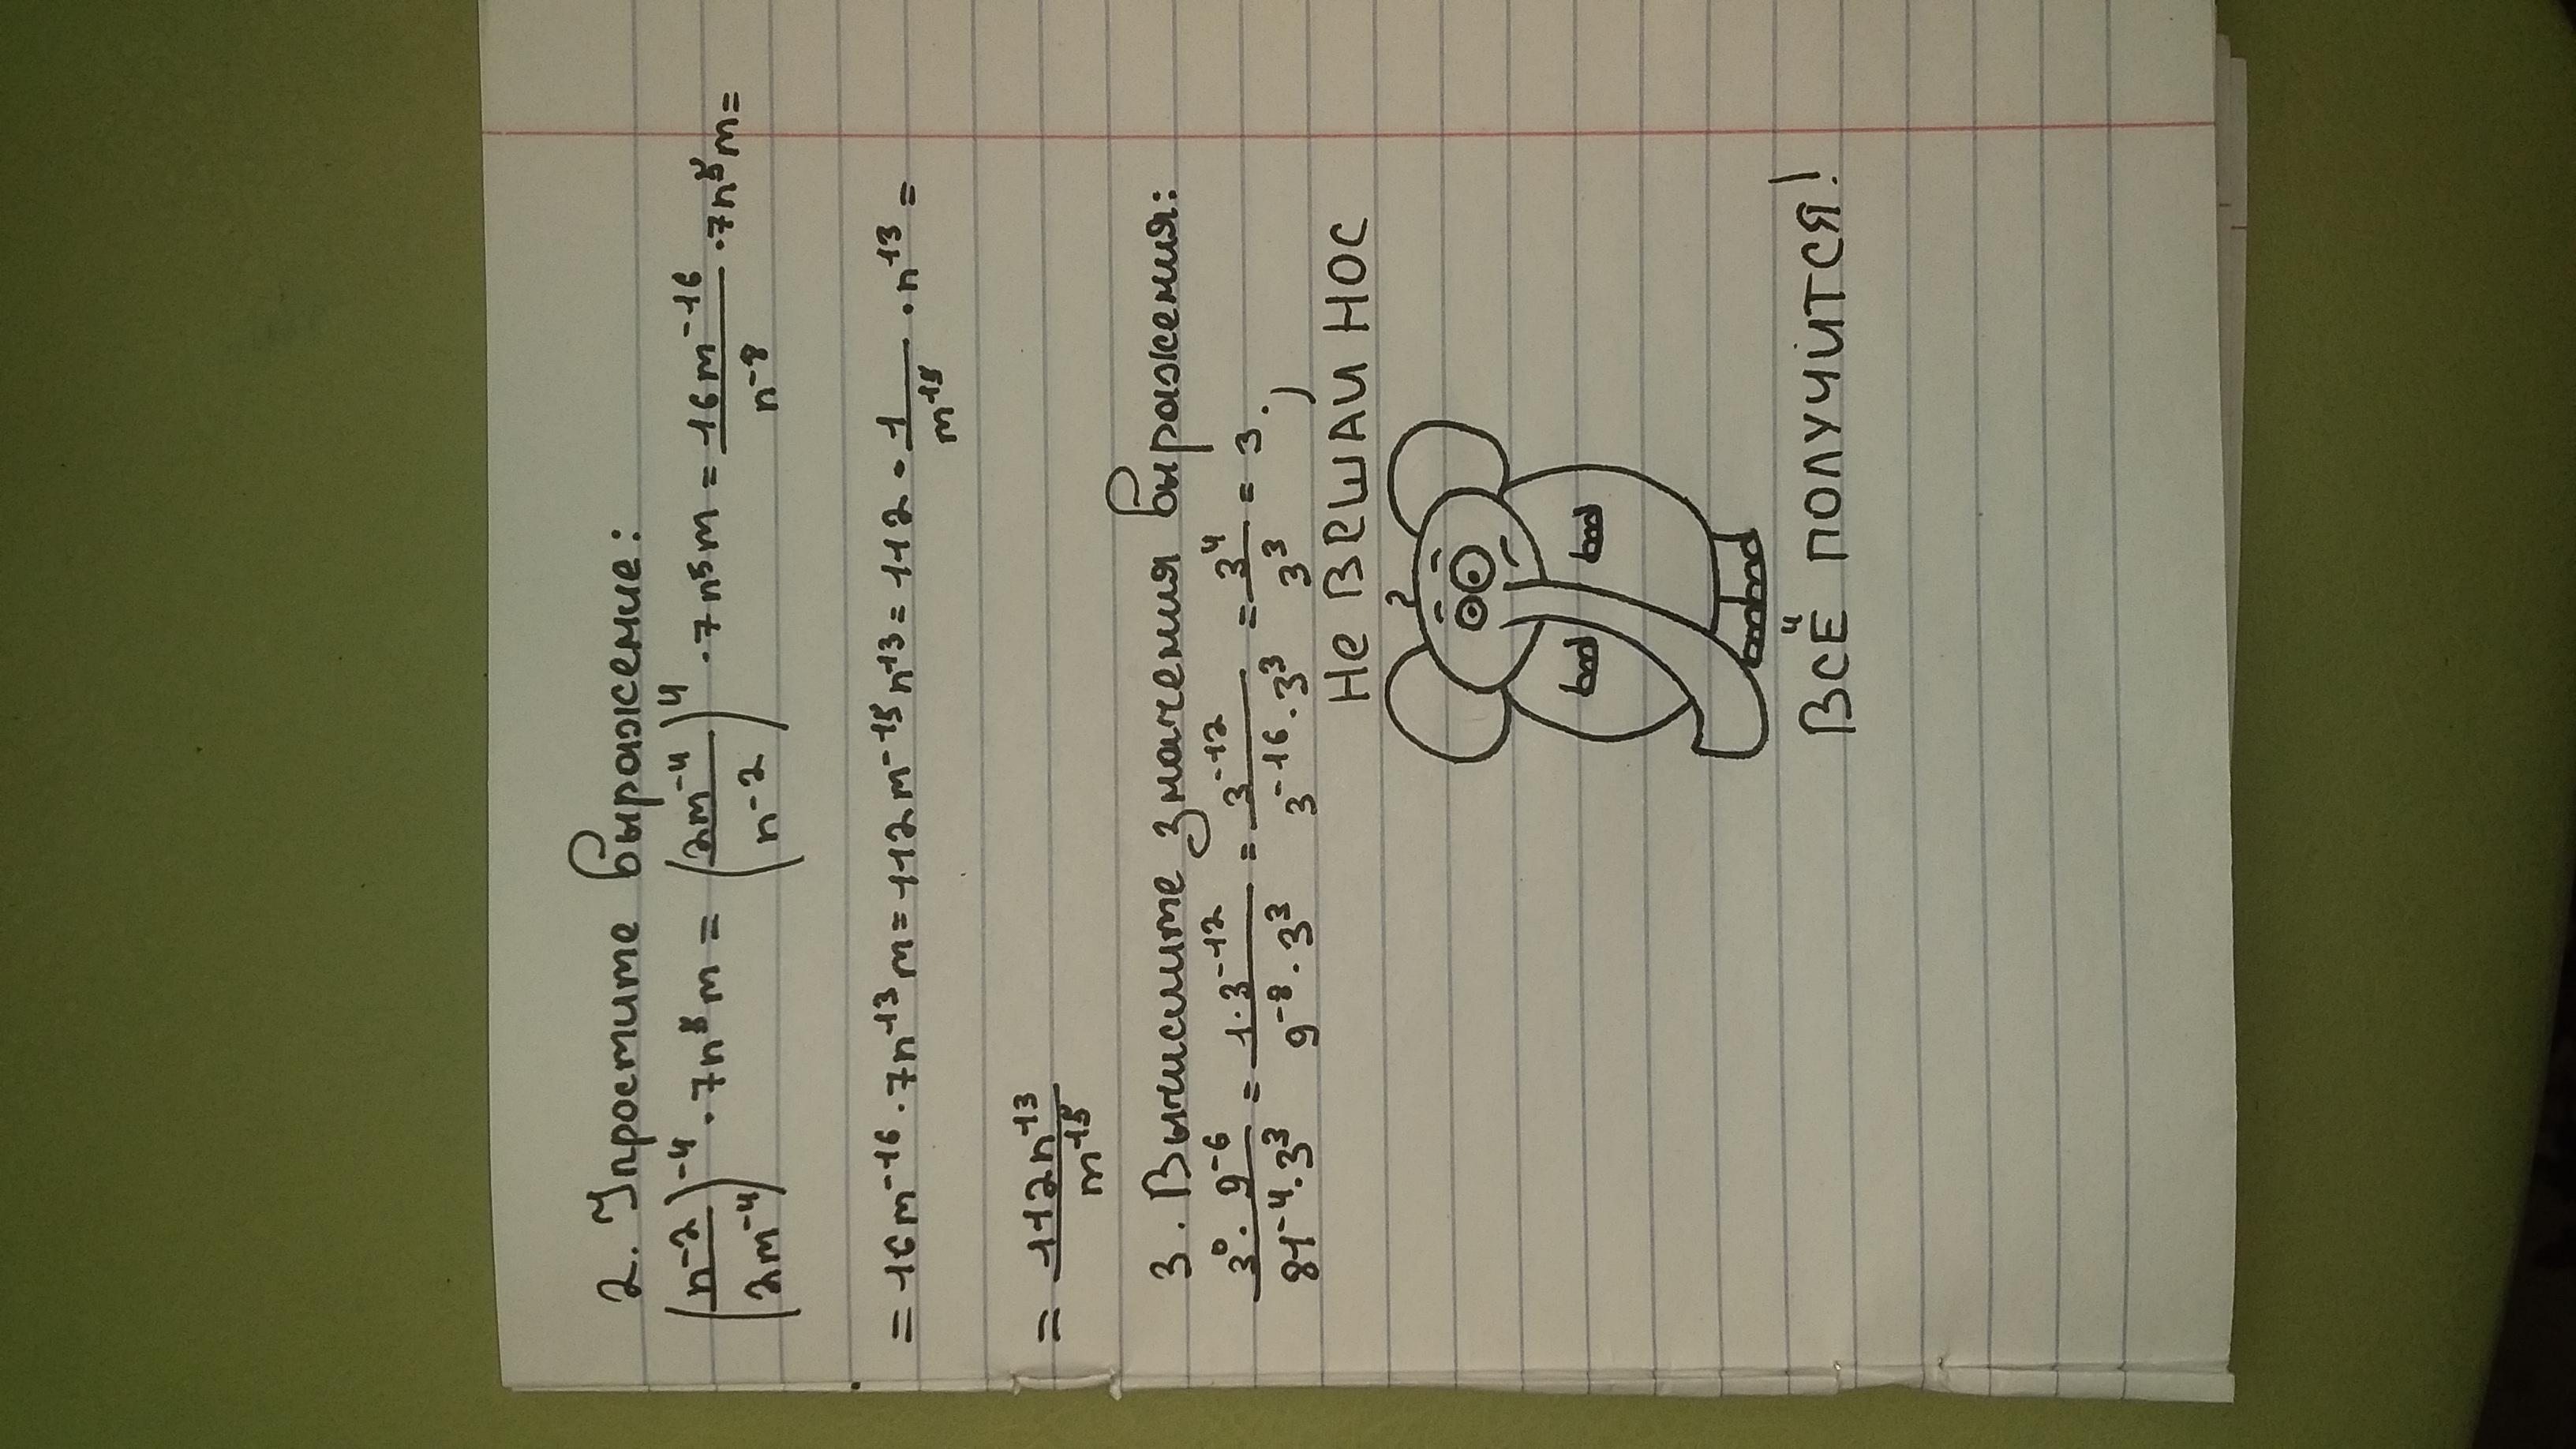 2. Упростите выражение:
(n⁻²/2m⁻⁴)⁻⁴ · 7n⁵m = (2m⁻⁴/n⁻²)⁴ · 7n⁵m = 16m⁻¹⁶/n⁻⁸ · 7n⁵m =
= 16m⁻¹⁶ · 7n¹³m = 112m⁻¹⁵n¹³ = 112 · 1/m¹⁵ · n¹³ =
= 112n¹³/m¹⁵
3. Вычислите значения выражения:
3⁰ · 9⁻⁶/81⁻⁴ · 3³ = 1 · 3⁻¹²/9⁻⁸ · 3³ = 3⁻¹²/3⁻¹⁶ · 3³ = 3⁴/3³ = 3 . )
Не ВЕШАЙ НОС
ВСЁ ПОЛУЧИТСЯ!